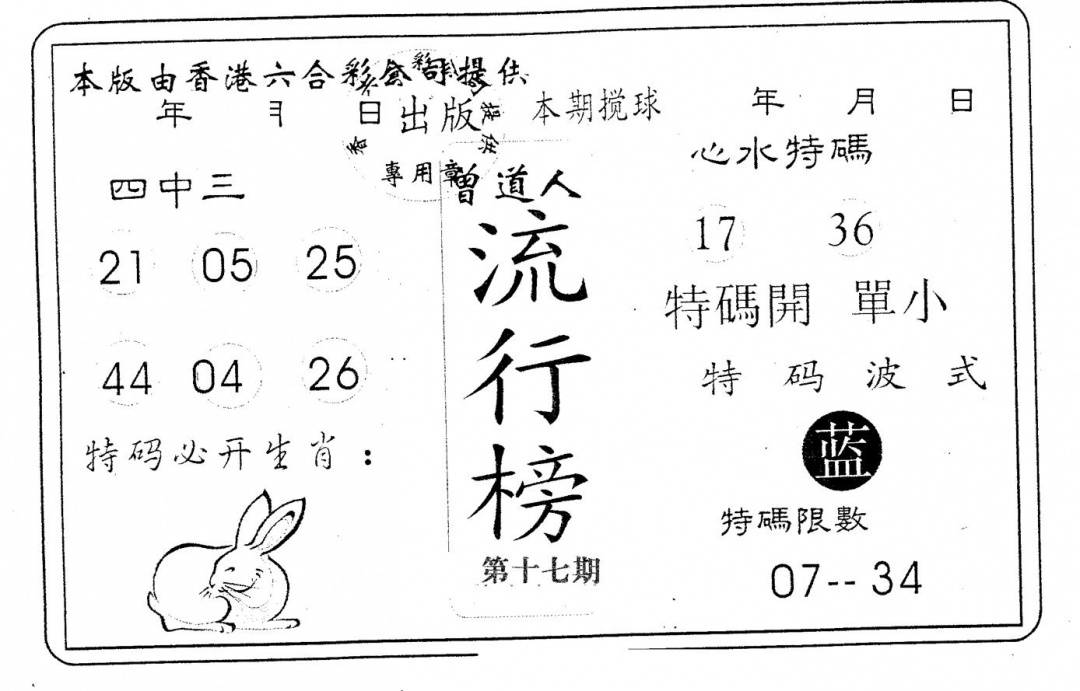 本版由香港六合彩公司提供
年 月 日 出版 本期搅球 年 月 日
專用章
四中三
21 05 25
44 04 26
特码必开生肖：
曾道人
流行榜
第十七期
心水特碼
17 36
特碼開 單小
特码波式
蓝
特碼限數
07-- 34